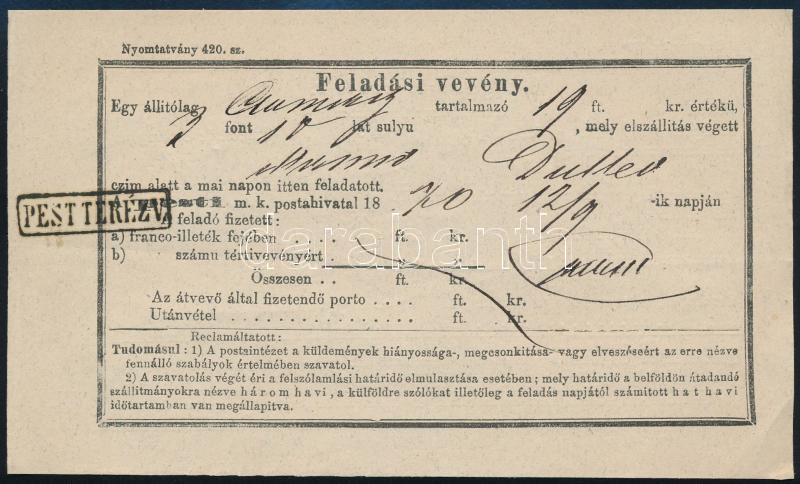 Nyomtatvány 420. sz.
Feladási vevény.
Egy állítólag tartalmazó 19 ft. kr. értékü,
3 font 17 lat sulyu , mely elszállitás végett
czim alatt a mai napon itten feladatott.
m. k. postahivatal 18 70 12/9 -ik napján
PEST TERÉZV.
A feladó fizetett:
a) franco-illeték fejében . . . . ft. kr.
b) számu tértivevényért . . . . .
Összesen . . ft. kr.
Az átvevő által fizetendő porto . . . . ft. kr.
Utánvétel . . . . . . . . . . . . . . . . ft. kr.
darabanth
Reclamáltatott:
Tudomásul: 1) A postaintézet a küldemények hiányossága-, megcsonkitása- vagy elveszéseért az erre nézve
fennálló szabályok értelmében szavatol.
2) A szavatolás végét éri a felszólamlási határidő elmulasztása esetében; mely határidő a belföldön átadandó
szállitmányokra nézve három havi, a külföldre szólókat illetőleg a feladás napjától számitott hat havi
időtartamban van megállapitva.